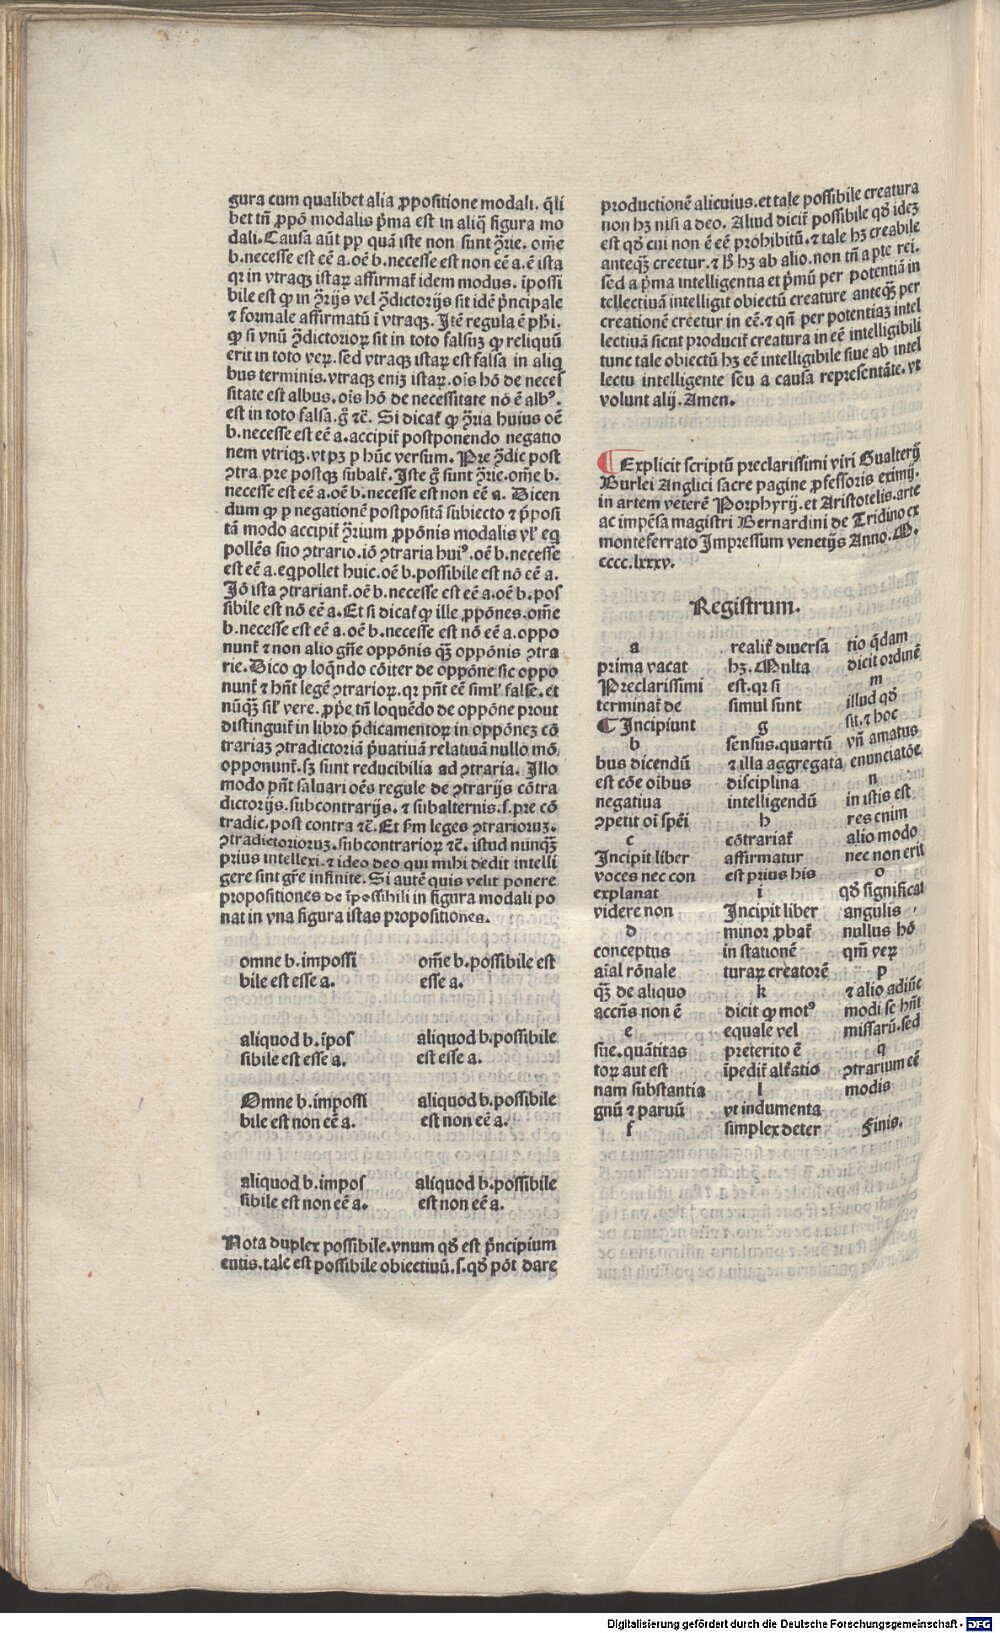 gura cum qualibet alia ꝓpositione modali. q̄li
bet tñ ꝓpō modalis p̄ma est in aliq̄ figura mo
dali. Causa aūt pp quā iste non sunt ↄ̄rie. om̄e
b. necesse est eē a. oē b. necesse est non eē a. ē ista
qr in vtraqꝫ istaꝝ affirmat᷑ idem modus. īpossi
bile est ꝙ in ↄ̄rijs vel ↄ̄dictorijs sit idē p̄ncipale
⁊ formale affirmatū ī vtraqꝫ. Itē regula ē ph̄i.
ꝙ si vnū ↄ̄dictorioꝝ sit in toto falsuꝫ ꝙ reliquū
erit in toto veꝝ. sed vtraqꝫ istaꝝ est falsa in aliq
bus terminis. vtraqꝫ eniꝫ istaꝝ. ois hō de neces
sitate est albus. ois hō de necessitate nō ē albꝰ.
est in toto falsa. g̊ ⁊c̄. Si dicat᷑ ꝙ ↄ̄ria huius oē
b. necesse est eē a. accipit᷑ postponendo negatio
nem vtriqꝫ. vt pꝫ p hūc versum. Pre ↄ̄dic post
ↄtra. pre postqꝫ subalt᷑. Iste g̊ sunt ↄ̄rie. om̄e b.
necesse est eē a. oē b. necesse est non eē a. Dicen
dum ꝙ p negationē postpositā subiecto ⁊ p̄posi
tā modo accipit᷑ ↄ̄rium ꝓpōnis modalis vl᷑ eq
pollēs suo ↄtrario. iō ↄtraria huiꝰ. oē b. necesse
est eē a. eqpollet huic. oē b. possibile est nō eē a.
Iō ista ↄtrariant᷑. oē b. necesse est eē a. oē b. pos
sibile est nō eē a. Et si dicat᷑ ꝙ ille ꝓpōnes. om̄e
b. necesse est eē a. oē b. necesse est nō eē a. oppo
nunt᷑ ⁊ non alio gn̄e oppōnis qꝫ oppōnis ↄtra
rie. Dico ꝙ loqn̄do cōiter de oppōne sic oppo
nunt᷑ ⁊ hn̄t legē ↄtrarioꝝ. qr pn̄t eē siml᷑ false. et
nūqꝫ sil᷑ vere. ꝓp̄e tñ loquēdo de oppōne prout
distinguit᷑ in libro p̄dicamentoꝝ in oppōneꝫ cō
trariaꝫ ↄtradictoriā p̄uatiuā relatiuā nullo mō
opponunt᷑. sꝫ sunt reducibilia ad ↄtraria. Illo
modo pn̄t saluari oēs regule de ↄtrarijs cōtra
dictorijs. subcontrarijs. ⁊ subalternis. s. pre cō
tradic. post contra ⁊c̄. Et sm̄ leges ↄtrarioruꝫ.
ↄtradictorioruꝫ. subcontrarioꝝ ⁊c̄. istud nunqꝫ
prius intellexi. ⁊ ideo deo qui mihi dedit intelli
gere sint gr̄e infinite. Si autē quis velit ponere
propositiones de īpossibili in figura modali po
nat in vna figura istas propositiones.
omne b. impossi
bile est esse a.
om̄e b. possibile est
esse a.
aliquod b. īpos
sibile est esse a.
aliquod b. possibile
est esse a.
Omne b. impossi
bile est non eē a.
aliquod b. possibile
est non eē a.
aliquod b. impos
sibile est non eē a.
aliquod b. possibile
est non eē a.
Nota duplex possibile. vnum qd̄ est p̄ncipium
entis. tale est possibile obiectiuū. s. qd̄ pōt dare
productionē alicuius. et tale possibile creatura
non hꝫ nisi a deo. Aliud dicit᷑ possibile qd̄ ideꝫ
est qd̄ cui non ē eē prohibitū. ⁊ tale hꝫ creabile
anteqꝫ creetur. ⁊ h̄ hꝫ ab alio. non tñ a pte rei.
sed a p̄ma intelligentia et p̄mū per potentiā in
tellectiuā intelligit obiectū creature anteqꝫ per
creationē creetur in eē. ⁊ qn̄ per potentiaꝫ intel
lectiuā sicut producit᷑ creatura in eē intelligibili
tunc tale obiectū hꝫ eē intelligibile siue ab intel
lectu intelligente seu a causa representāte. vt
volunt alij. Amen.
¶ Explicit scriptū preclarissimi viri Gualterij
Burlei Anglici sacre pagine ꝓfessoris eximij.
in artem veterē Porphyrij. et Aristotelis. arte
ac impēsa magistri Bernardini de Tridino ex
monteferrato Impressum venetijs Anno. M.
cccc. lxxxv.
Registrum.
a
prima vacat
Preclarissimi
terminat᷑ de
¶ Incipiunt
b
bus dicendū
est cōe oibus
negatiua
ↄpetit oi spēi
c
Incipit liber
voces nec con
explanat
videre non
d
conceptus
aīal rōnale
qꝫ de aliquo
accn̄s non ē
e
sn̄e. quātitas
toꝝ aut est
nam substantia
gnū ⁊ paruū
f
realit᷑ diuersa
hꝫ. Multa
est. qr si
simul sunt
g
sensus. quartū
⁊ illa aggregata
disciplina
intelligendū
h
cōtrariat᷑
affirmatur
est prius his
i
Incipit liber
minor ꝓbat᷑
in stationē
turaꝝ creatorē
k
dicit ꝙ motꝰ
equale vel
preterito ē
īpedit᷑ alt᷑atio
l
vt indumenta
simplex deter
tio q̄dam
dicit ordinē
m
illud qd̄
sit. ⁊ hoc
vn̄ amatus
enunciatōe
n
in istis est
res enim
alio modo
nec non erit
o
qd̄ significat
angulis
nullus hō
qm̄ veꝝ
p
⁊ alio adiūe
modi se hn̄t
missaꝝ. sed
q
ↄtrarium eē
modis
Finis.
Digitalisierung gefördert durch die Deutsche Forschungsgemeinschaft - DFG